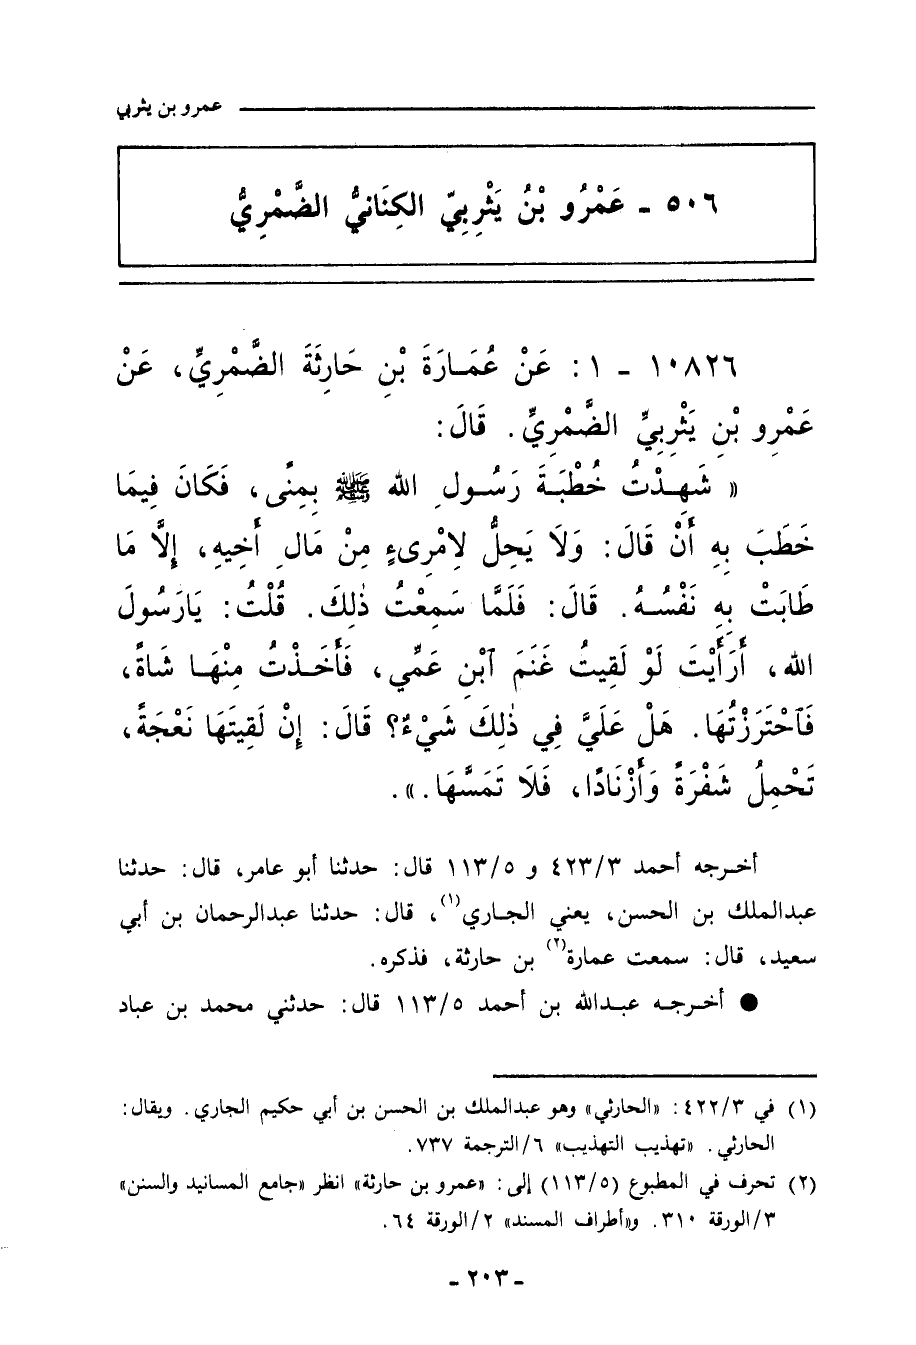 عمرو بن يثربي
٥٠٦ ـ عَمْرُو بْنُ يَثْرِبِيّ الكِنَانيُّ الضَّمْرِيُّ
١٠٨٢٦ ـ ١: عَنْ عُمَـارَةَ بْنِ حَارِثَةَ الضَّمْرِيِّ، عَنْ
عَمْرِو بْنِ يَثْرِبِيٍّ الضَّمْرِيِّ. قَالَ:
« شَهِـدْتُ خُطْبَـةَ رَسُـولِ الله ﷺ بِمِنًى، فَكَانَ فِيمَا
خَطَبَ بِهِ أَنْ قَالَ: وَلَا يَحِلُّ لِامْرِىءٍ مِنْ مَالِ أَخِيهِ، إِلَّا مَا
طَابَتْ بِهِ نَفْسُـهُ. قَالَ: فَلَمَّا سَمِعْتُ ذٰلِكَ. قُلْتُ: يَارَسُولَ
الله، أَرَأَيْتَ لَوْ لَقِيتُ غَنَمَ ٱبْنِ عَمِّي، فَأَخَـذْتُ مِنْهَـا شَاةً،
فَٱحْتَرَزْتُهَا. هَلْ عَلَيَّ فِي ذٰلِكَ شَيْءٌ؟ قَالَ: إِنْ لَقِيتَهَا نَعْجَةً،
تَحْمِلُ شَفْرَةً وَأَزْنَادًا، فَلَا تَمَسَّهَا.».
أخـرجه أحمد ٤٢٣/٣ و ١١٣/٥ قال: حدثنا أبو عامر، قال: حدثنا
عبدالملك بن الحسن، يعني الجـاري(١)، قال: حدثنا عبدالرحمان بن أبي
سعيد، قال: سمعت عمارة(٢) بن حارثة، فذكره.
● أخـرجـه عبـدالله بن أحمد ١١٣/٥ قال: حدثني محمد بن عباد
(١) في ٤٢٢/٣: «الحارثي» وهو عبدالملك بن الحسن بن أبي حكيم الجاري. ويقال:
الحارثي. «تهذيب التهذيب» ٦/الترجمة ٧٣٧.
(٢) تحرف في المطبوع (١١٣/٥) إلى: «عمرو بن حارثة» انظر «جامع المسانيد والسنن»
٣/الورقة ٣١٠. و«أطراف المسند» ٢/الورقة ٦٤.
ـ ٢٠٣ ـ